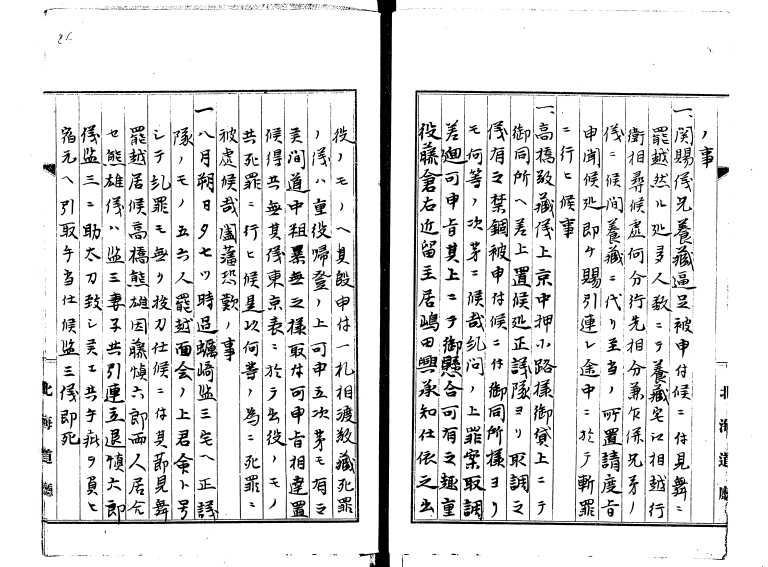 ノ事
一、関賜儀兄養蔵逼足被申付候ニ付見舞ニ
罷越然ル処多人数ニテ養蔵宅江相越行
衛相尋候處何分行先相分兼候係兄弟ノ
儀ニ候間養蔵ニ代リ至当ノ所置請度旨
申聞候処即チ賜引連レ途中ニ於テ斬罪
ニ行ヒ候事
一、高橋敬蔵儀上京中押小路様御貸上ニテ
御同所ヘ差上置候処正議隊ヨリ取調之
儀有之禁錮被申付候ニ付御同所様ヨリ
モ何等ノ次第ニ候哉糺問ノ上罪案取調
差廻可申旨其上ニテ御懸合可有之趣重
役藤倉右近留主居嶋田興承知仕依之出
役ノモノヘ其段申付一札相渡敬蔵死罪
ノ儀ハ重役帰登ノ上可申立次第モ有之
矣間道中粗暴無之様取付可申旨相達置
候得共無其儀東京表ニ於テ出役ノモノ
共死罪ニ行ヒ候是以何等ノ為ニ死罪ニ
被處候哉闔藩恐歎ノ事
一八月朔日夕七ツ時過蠣崎監三宅ヘ正議
隊ノモノ五六人罷越面会ノ上君命ト号
シテ糺罪モ無ク抜刀仕候ニ付其節見舞
罷越居候高橋熊雄因藤愼六郎両人居合
セ熊雄儀ハ監三妻子共引連立退愼六郎
儀監三ニ助太刀致シ矣共手疵ヲ負ヒ
宿元ヘ引取手当仕候監三儀即死
北海道廳
北海道廳